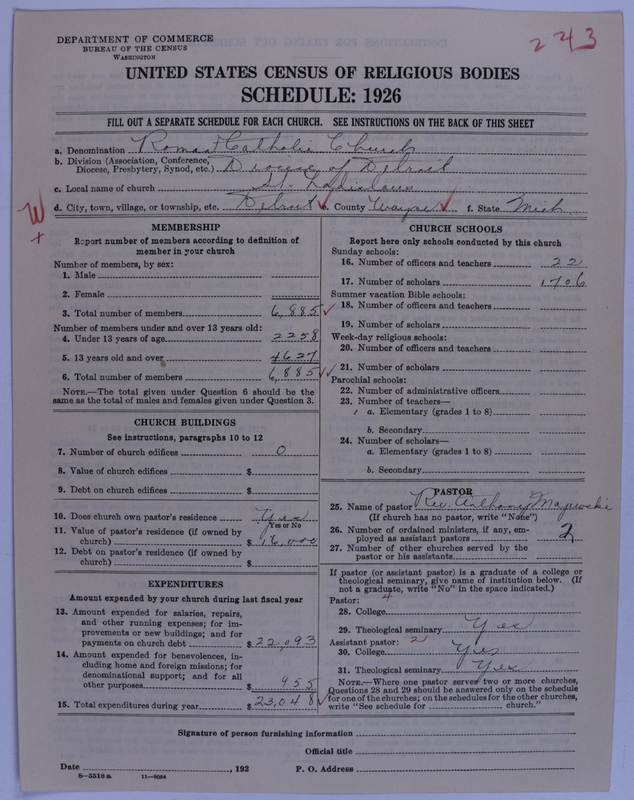 DEPARTMENT OF COMMERCE
BUREAU OF THE CENSUS
WASHINGTON
223
UNITED STATES CENSUS OF RELIGIOUS BODIES
SCHEDULE: 1926
FILL OUT A SEPARATE SCHEDULE FOR EACH CHURCH. SEE INSTRUCTIONS ON THE BACK OF THIS SHEET
a. Denomination Roman Catholic Church
b. Division (Association, Conference, Diocese, Presbytery, Synod, etc.) Diocese of Detroit
c. Local name of church St. Ladislaus
d. City, town, village, or township, etc. Detroit e. County Wayne f. State Mich
W
+
MEMBERSHIP
Report number of members according to definition of
member in your church
Number of members, by sex:
1. Male
2. Female
3. Total number of members 6,885
Number of members under and over 13 years old:
4. Under 13 years of age 2258
5. 13 years old and over 4627
6. Total number of members 6,885
NOTE.—The total given under Question 6 should be
same as the total of males and females given under Question 3.
CHURCH BUILDINGS
See instructions, paragraphs 10 to 12
7. Number of church edifices 0
8. Value of church edifices $
9. Debt on church edifices $
10. Does church own pastor's residence Yes
Yes or No
11. Value of pastor's residence (if owned by
church) $ 16,000
12. Debt on pastor's residence (if owned by
church) $
EXPENDITURES
Amount expended by your church during last fiscal year
13. Amount expended for salaries, repairs,
and other running expenses; for im-
provements or new buildings; and for
payments on church debt $ 22,093
14. Amount expended for benevolences, in-
cluding home and foreign missions; for
denominational support; and for all
other purposes $ 955
15. Total expenditures during year $ 23,048
CHURCH SCHOOLS
Report here only schools conducted by this church
Sunday schools:
16. Number of officers and teachers 22
17. Number of scholars 1706
Summer vacation Bible schools:
18. Number of officers and teachers
19. Number of scholars
Week-day religious schools:
20. Number of officers and teachers
21. Number of scholars
Parochial schools:
22. Number of administrative officers
23. Number of teachers—
a. Elementary (grades 1 to 8)
b. Secondary
24. Number of scholars—
a. Elementary (grades 1 to 8)
b. Secondary
PASTOR
25. Name of pastor Rev. Anthony Majewski
(If church has no pastor, write "None")
26. Number of ordained ministers, if any, em-
ployed as assistant pastors 2
27. Number of other churches served by the
pastor or his assistants
If pastor (or assistant pastor) is a graduate of a college or
theological seminary, give name of institution below. (If
not a graduate, write "No" in the space indicated.)
Pastor: 4
28. College
29. Theological seminary Yes
Assistant pastor: 2
30. College Yes
31. Theological seminary Yes
NOTE.—Where one pastor serves two or more churches,
Questions 28 and 29 should be answered only on the schedule
for one of the churches; on the schedules for the other churches,
write "See schedule for church."
Signature of person furnishing information
Official title
Date , 192 P. O. Address
8—5518a 11—9034